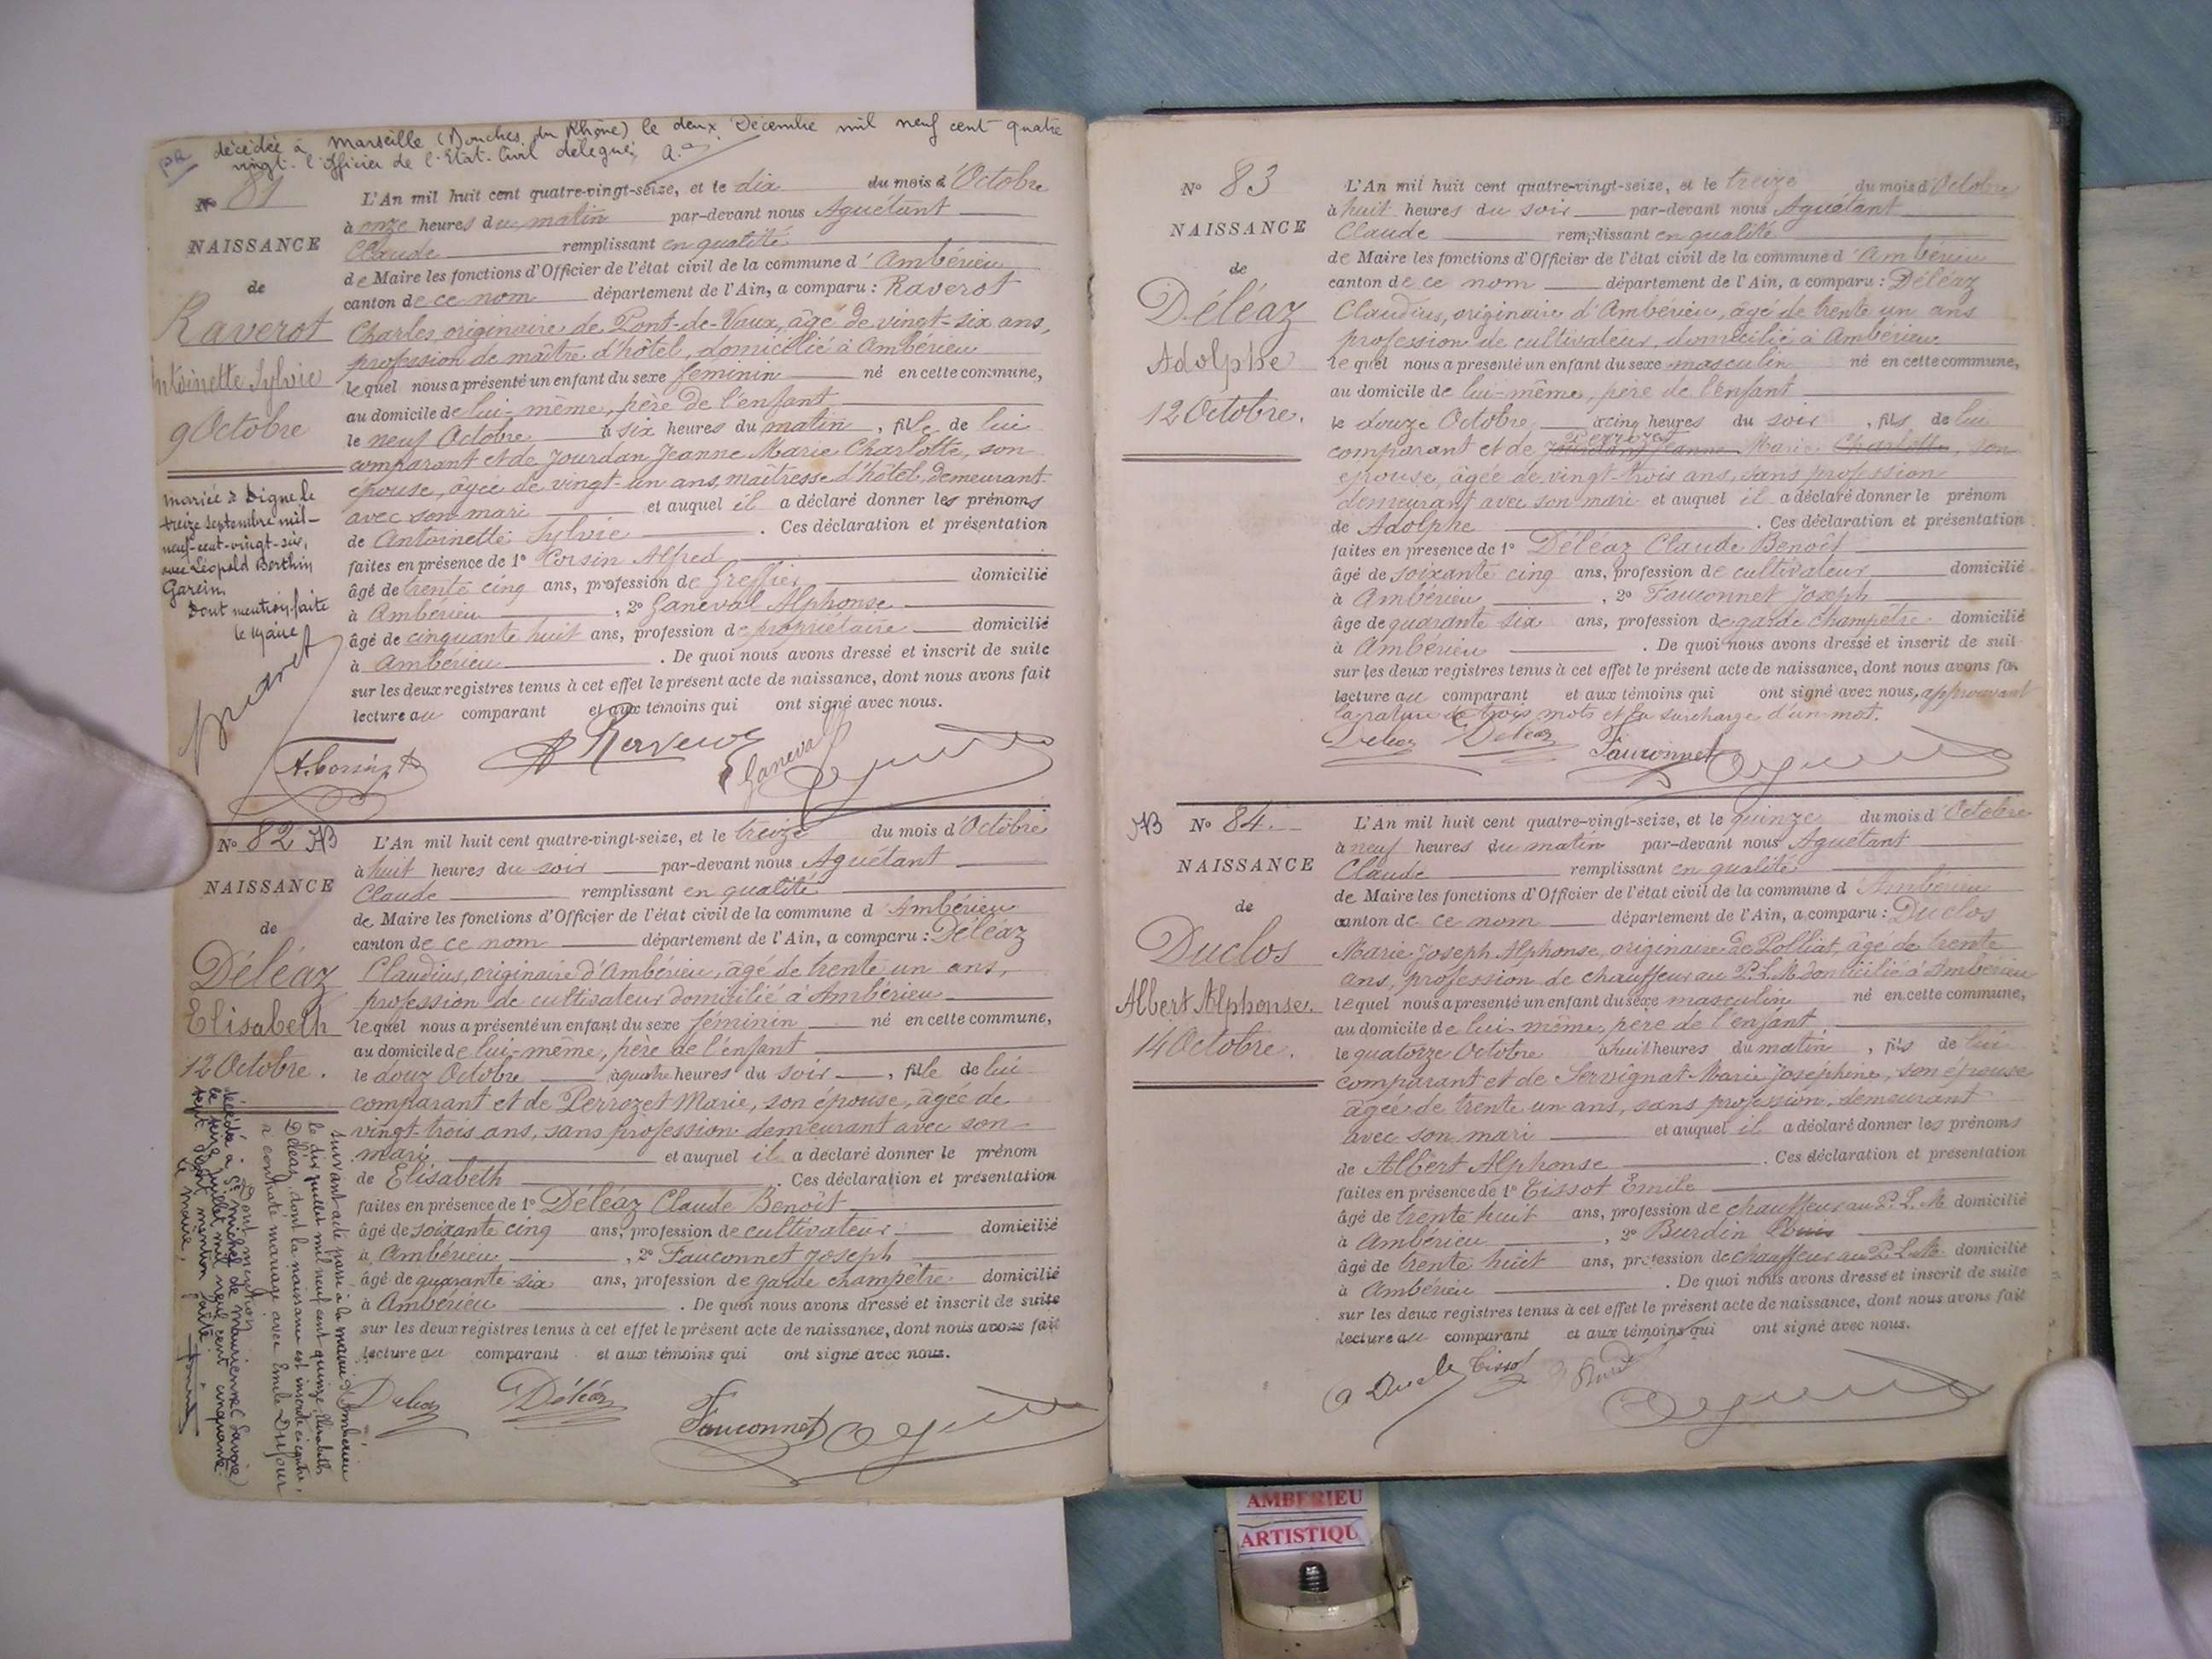 décédée à Marseille (Bouches du Rhône) le deux Décembre mil neuf cent quatre
vingt. l'officier de l'Etat-Civil délégué
No 81
NAISSANCE
de
Raverot
Antoinette Sylvie
9 Octobre
mariée à Digne le
treize septembre mil-
neuf-cent-vingt-six,
avec Léopold Berthin
Garcin
Dont mention faite
le Maire
L'An mil huit cent quatre-vingt-seize, et le dix du mois d'Octobre
à onze heures du matin par-devant nous Aguétant
Claude remplissant en qualité
de Maire les fonctions d'Officier de l'état civil de la commune d'Ambérieu
canton de ce nom département de l'Ain, a comparu : Raverot
Charles originaire de Pont-de-Vaux, âgé de vingt-six ans,
profession de maître d'hôtel, domicilié à Ambérieu
lequel nous a présenté un enfant du sexe féminin né en cette commune,
au domicile de lui-même, père de l'enfant
le neuf Octobre à six heures du matin, fille de lui
comparant et de Jourdan Jeanne Marie Charlotte, son
épouse, âgée de vingt-un ans, maîtresse d'hôtel, demeurant
avec son mari et auquel il a déclaré donner les prénoms
de Antoinette Sylvie . Ces déclaration et présentation
faites en présence de 1º Corsin Alfred
âgé de trente cinq ans, profession de Greffier domicilié
à Ambérieu , 2º Ganeval Alphonse
âgé de cinquante huit ans, profession de propriétaire domicilié
à Ambérieu . De quoi nous avons dressé et inscrit de suite
sur les deux registres tenus à cet effet le présent acte de naissance, dont nous avons fait
lecture au comparant et aux témoins qui ont signé avec nous.
Ganeval
No 82 AB
NAISSANCE
de
Déléaz
Elisabeth
12 Octobre.
suivant acte passé à la mairie d'Ambérieu
le dix juillet mil neuf cent quinze, Elisabeth
Déléaz, dont la naissance est inscrite ci-contre,
a contracté mariage avec Emile Dufour
Dont mention
décédée à St Michel de Maurienne (Savoie)
le seize juillet mil neuf cent cinquante
sept Dont mention faite
Le Maire,
L'An mil huit cent quatre-vingt-seize, et le treize du mois d'Octobre
à huit heures du soir par-devant nous Aguétant
Claude remplissant en qualité
de Maire les fonctions d'Officier de l'état civil de la commune d'Ambérieu
canton de ce nom département de l'Ain, a comparu : Déléaz
Claudius, originaire d'Ambérieu, âgé de trente un ans,
profession de cultivateur domicilié à Ambérieu
lequel nous a présenté un enfant du sexe féminin né en cette commune,
au domicile de lui-même, père de l'enfant
le douz Octobre à quatre heures du soir, fille de lui
comparant et de Perrozet Marie, son épouse, âgée de
vingt-trois ans, sans profession demeurant avec son
mari et auquel il a déclaré donner le prénom
de Elisabeth . Ces déclaration et présentation
faites en présence de 1º Déléaz Claude Benoît
âgé de soixante cinq ans, profession de cultivateur domicilié
à Ambérieu , 2º Fauconnet Joseph
âgé de quarante six ans, profession de garde champêtre domicilié
à Ambérieu . De quoi nous avons dressé et inscrit de suite
sur les deux registres tenus à cet effet le présent acte de naissance, dont nous avons fait
lecture au comparant et aux témoins qui ont signé avec nous.
Déléaz Fauconnet
No 83
NAISSANCE
de
Déléaz
Adolphe
12 Octobre.
L'An mil huit cent quatre-vingt-seize, et le treize du mois d'Octobre
à huit heures du soir par-devant nous Aguétant
Claude remplissant en qualité
de Maire les fonctions d'Officier de l'état civil de la commune d'Ambérieu
canton de ce nom département de l'Ain, a comparu : Déléaz
Claudius, originaire d'Ambérieu, âgé de trente un ans
profession de cultivateur, domicilié à Ambérieu
lequel nous a présenté un enfant du sexe masculin né en cette commune,
au domicile de lui-même, père de l'enfant
le douze Octobre à cinq heures du soir, fils de lui
Perrozet
comparant et de Jourdan Jeanne Marie Charlotte, son
épouse, âgée de vingt-trois ans, sans profession
demeurant avec son mari et auquel il a déclaré donner le prénom
de Adolphe . Ces déclaration et présentation
faites en présence de 1º Déléaz Claude Benoît
âgé de soixante cinq ans, profession de cultivateur domicilié
à Ambérieu , 2º Fauconnet Joseph
âgé de quarante six ans, profession de garde champêtre domicilié
à Ambérieu . De quoi nous avons dressé et inscrit de suit
sur les deux registres tenus à cet effet le présent acte de naissance, dont nous avons fa
lecture au comparant et aux témoins qui ont signé avec nous, approuvant
la rature de trois mots et la surcharge d'un mot.
Déléaz Déléaz Fauconnet
AB No 84.
NAISSANCE
de
Duclos
Albert Alphonse.
14 Octobre.
L'An mil huit cent quatre-vingt-seize, et le quinze du mois d'Octobre
à neuf heures du matin par-devant nous Aguétant
Claude remplissant en qualité
de Maire les fonctions d'Officier de l'état civil de la commune d'Ambérieu
canton de ce nom département de l'Ain, a comparu : Duclos
Marie Joseph Alphonse, originaire de Polliat, âgé de trente
ans, profession de chauffeur au P.L.M. domicilié à Ambérieu
lequel nous a présenté un enfant du sexe masculin né en cette commune,
au domicile de lui-même, père de l'enfant
le quatorze Octobre à huit heures du matin, fils de lui
comparant et de Servignat Marie Joséphine, son épouse
âgée de trente un ans, sans profession, demeurant
avec son mari et auquel il a déclaré donner les prénoms
de Albert Alphonse . Ces déclaration et présentation
faites en présence de 1º Tissot Emile
âgé de trente huit ans, profession de chauffeur au P.L.M domicilié
à Ambérieu , 2º Burdin Louis
âgé de trente huit ans, profession de chauffeur au P.L.M. domicilié
à Ambérieu . De quoi nous avons dressé et inscrit de suite
sur les deux registres tenus à cet effet le présent acte de naissance, dont nous avons fait
lecture au comparant et aux témoins qui ont signé avec nous.
Tissot
AMBERIEU
ARTISTIQU